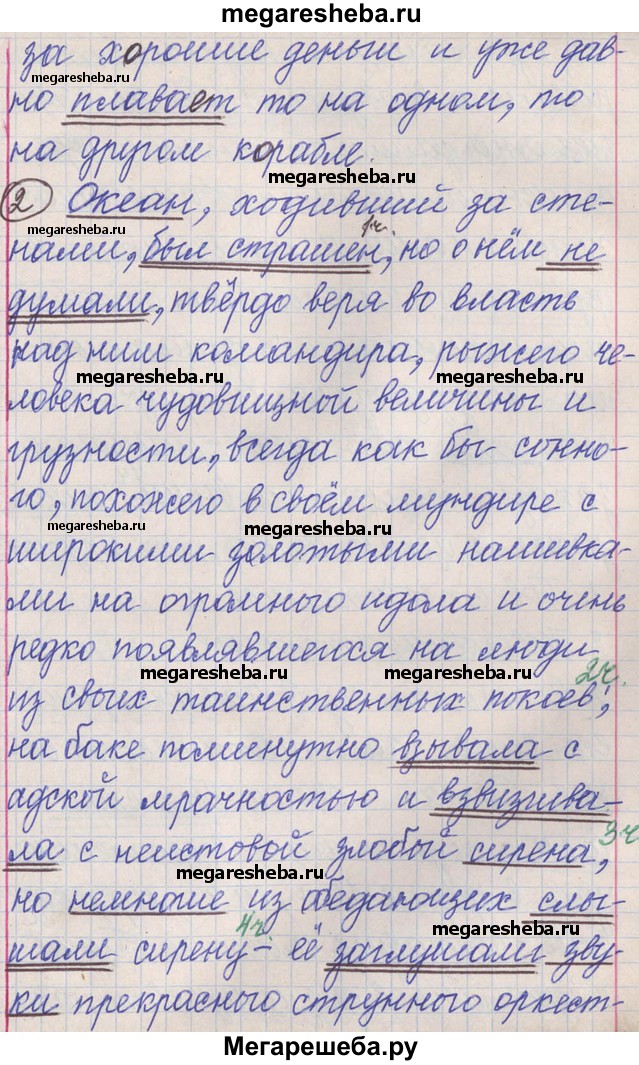 megaresheba.ru
за хорошие деньги и уже дав-
megaresheba.ru
но плавает то на одном, то
на другом корабле.
megaresheba.ru
2 Океан, ходивший за сте-
1ч.
нами, был страшен, но о нём не
megaresheba.ru
думали, твёрдо веря во власть
над ним командира, рыжего че-
megaresheba.ru megaresheba.ru
ловека чудовищной величины и
грузности, всегда как бы сонно-
го, похожего в своём мундире с
megaresheba.ru megaresheba.ru
широкими золотыми нашивка-
ми на огромного идола и очень
редко появлявшегося на люди
megaresheba.ru megaresheba.ru
2ч.
из своих таинственных покоев;
на баке поминутно взывала с
адской мрачностью и взвизгива-
3ч
ла с неистовой злобой сирена,
megaresheba.ru
но немногие из обедающих слы-
4ч.
megaresheba.ru
шали сирену – её заглушали зву-
ки прекрасного струнного оркест-
Мегарешеба.ру